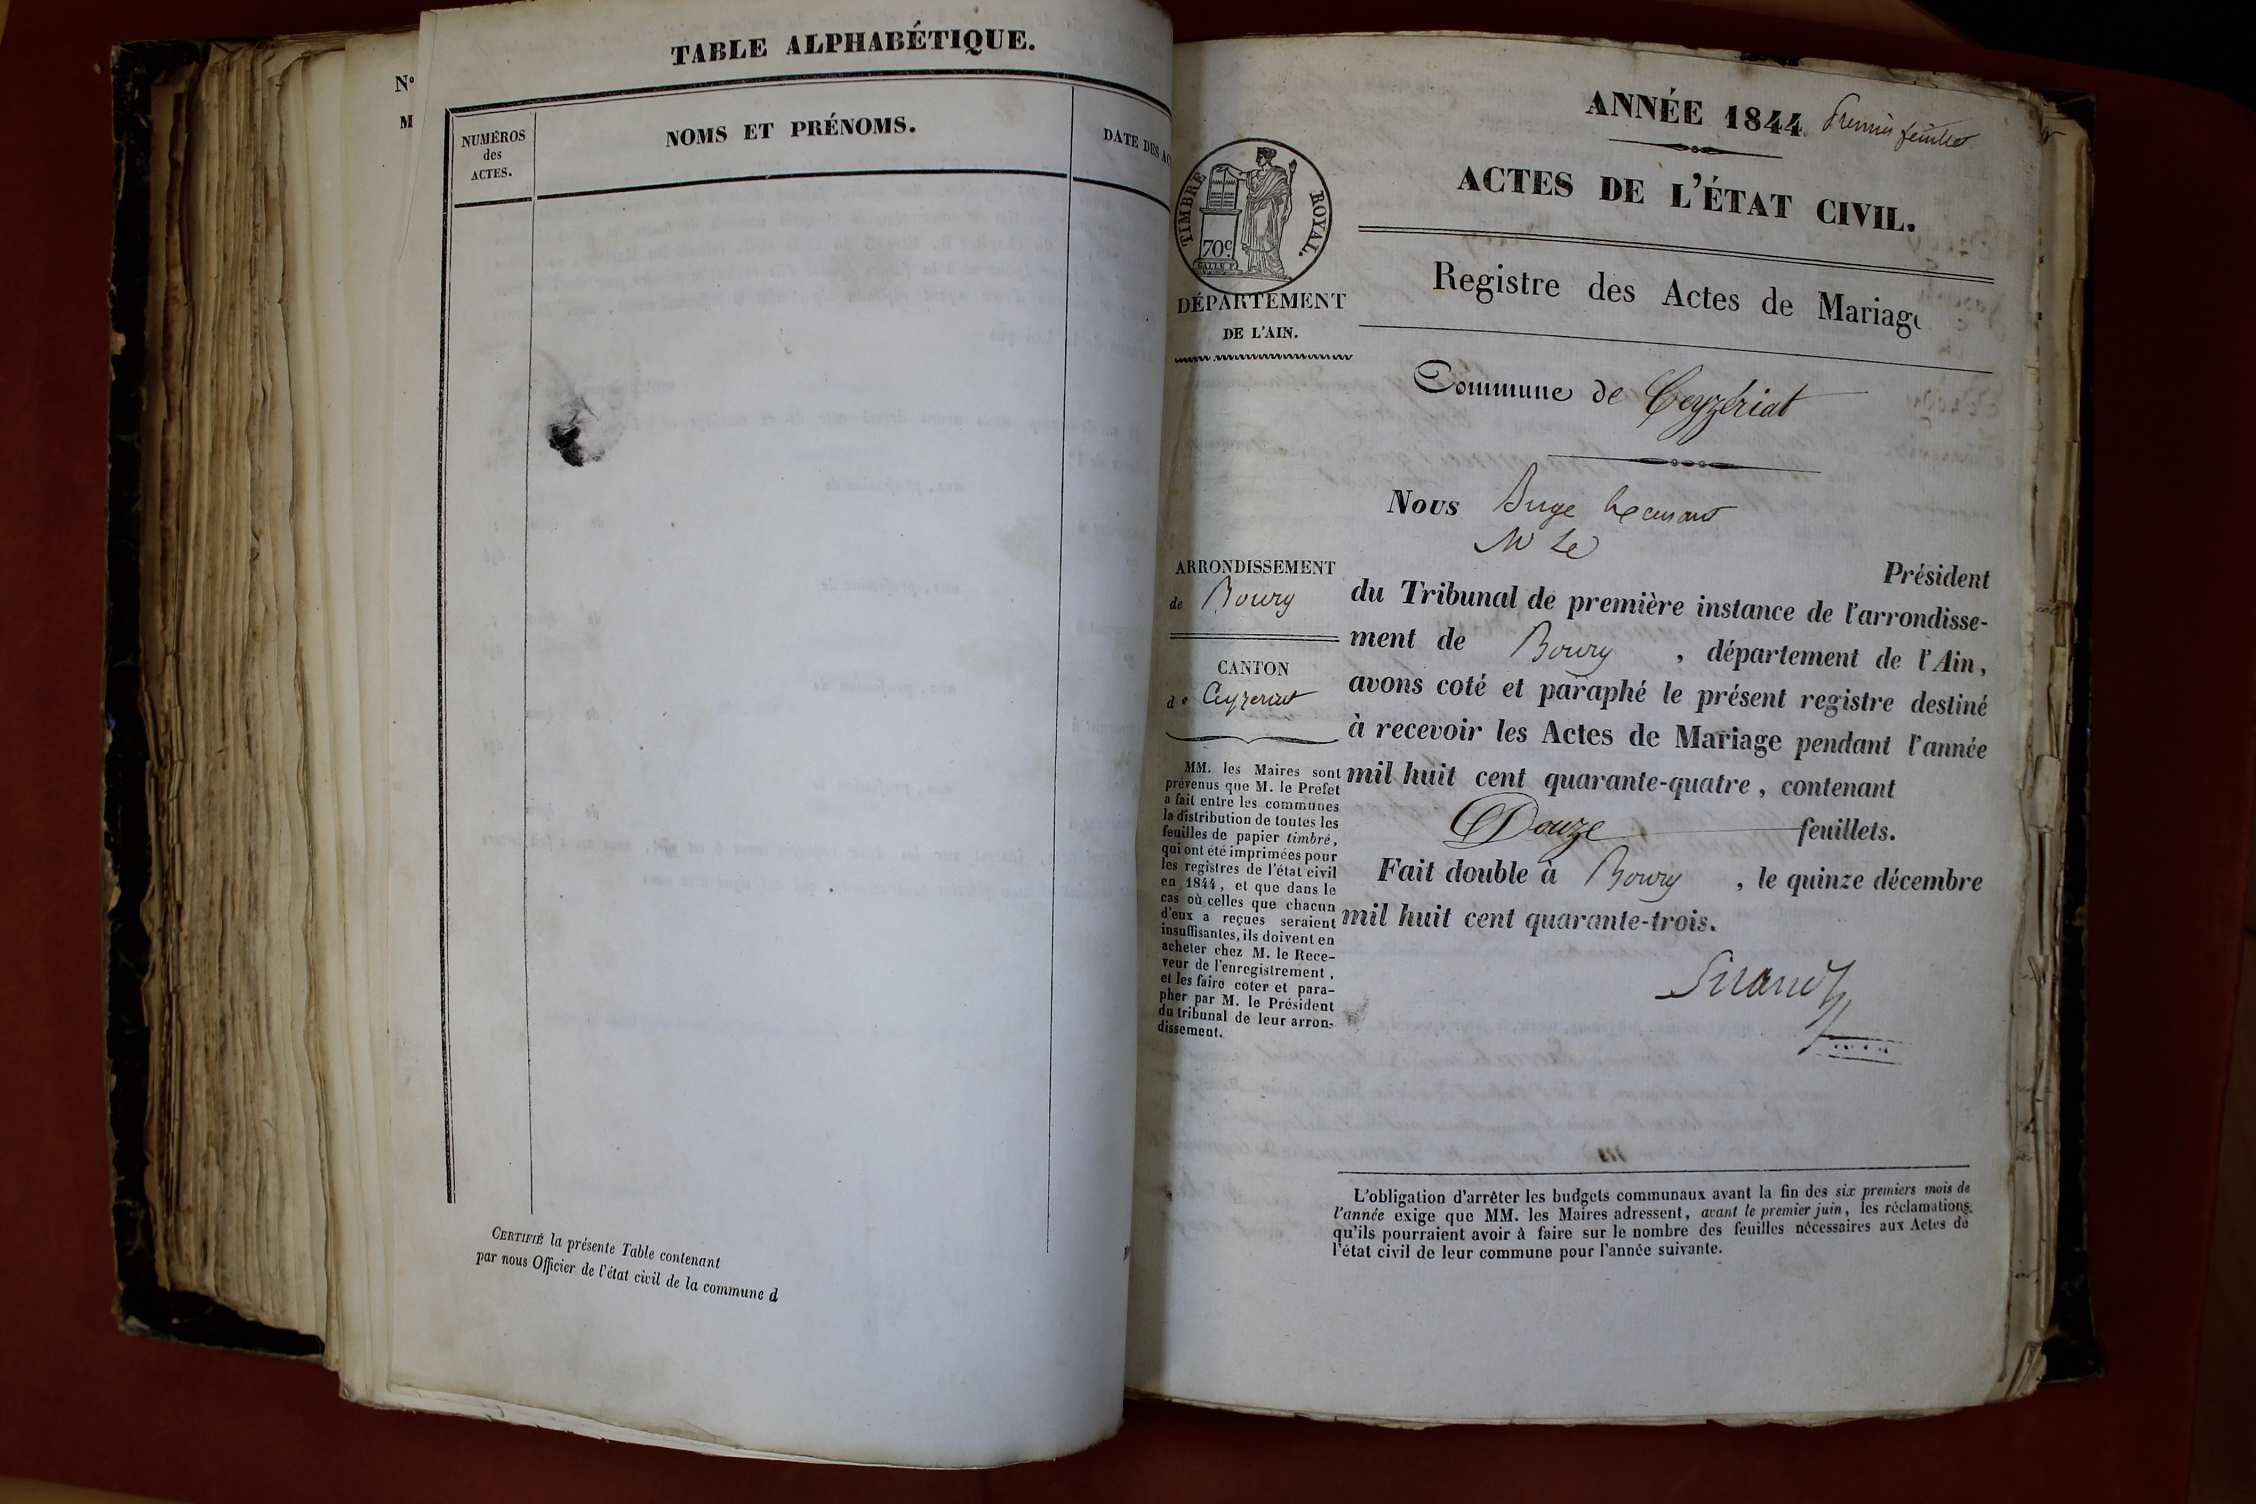 N°
M
TABLE ALPHABÉTIQUE.
NUMÉROS
des
ACTES.
NOMS ET PRÉNOMS.
DATE DES AC
CERTIFIÉ la présente Table contenant
par nous Officier de l'état civil de la commune d
ANNÉE 1844 Premier feuillet
ACTES DE L'ÉTAT CIVIL.
TIMBRE ROYAL.
70c
DÉPARTEMENT
DE L'AIN.
Registre des Actes de Mariage
Commune de Ceyzériat
Nous
Président
ARRONDISSEMENT
de Bourg
CANTON
de Ceyzeriat
du Tribunal de première instance de l'arrondisse-
ment de Bourg , département de l'Ain,
avons coté et paraphé le présent registre destiné
à recevoir les Actes de Mariage pendant l'année
mil huit cent quarante-quatre, contenant
Douze feuillets.
Fait double à Bourg , le quinze décembre
mil huit cent quarante-trois.
MM. les Maires sont
prévenus que M. le Prefet
a fait entre les communes
la distribution de toutes les
feuilles de papier timbré,
qui ont été imprimées pour
les registres de l'état civil
en 1844, et que dans le
cas où celles que chacun
d'eux a reçues seraient
insuffisantes, ils doivent en
acheter chez M. le Rece-
veur de l'enregistrement,
et les faire coter et para-
pher par M. le Président
du tribunal de leur arron-
dissement.
L'obligation d'arrêter les budgets communaux avant la fin des six premiers mois de
l'année exige que MM. les Maires adressent, avant le premier juin, les réclamations
qu'ils pourraient avoir à faire sur le nombre des feuilles nécessaires aux Actes de
l'état civil de leur commune pour l'année suivante.